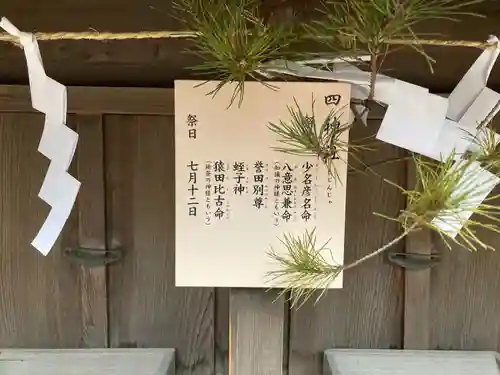 四神社
じんじゃ
少名彦名命
八意思兼命
(知識の神様ともいう)
誉田別尊
蛭子神
猿田比古命
祭日 七月十二日